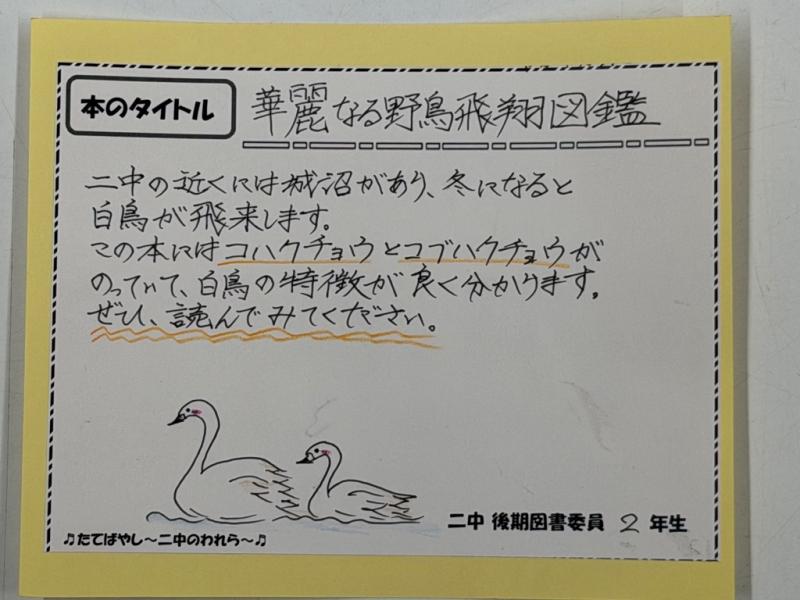 本のタイトル 華麗なる野鳥飛翔図鑑
二中の近くには城沼があり、冬になると
白鳥が飛来します。
この本にはコハクチョウとコブハクチョウが
のっていて、白鳥の特徴が良く分かります。
ぜひ、読んでみてください。
二中 後期図書委員 2 年生
♫たてばやし～二中のわれら～♫